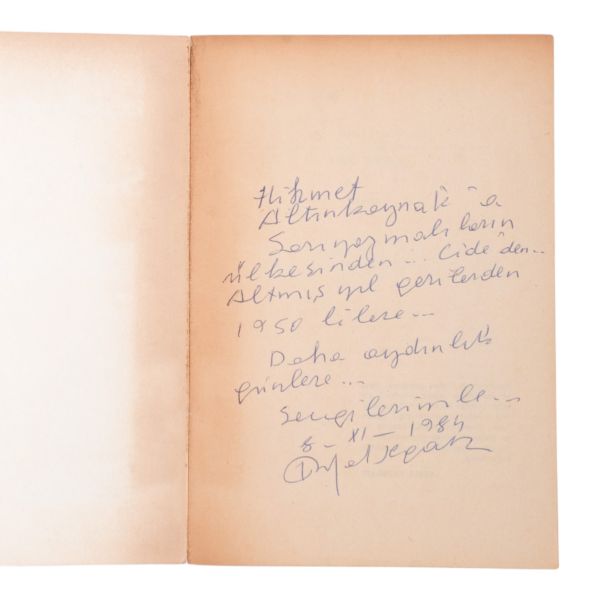 Hikmet
Altınkaynak'a
Sarıyazmalıların
ülkesinden... Cide'den...
Altmış yıl gerilerden
1950 lilere...
Daha aydınlık
günlere...
Sevgilerimle...
8-XI-1984